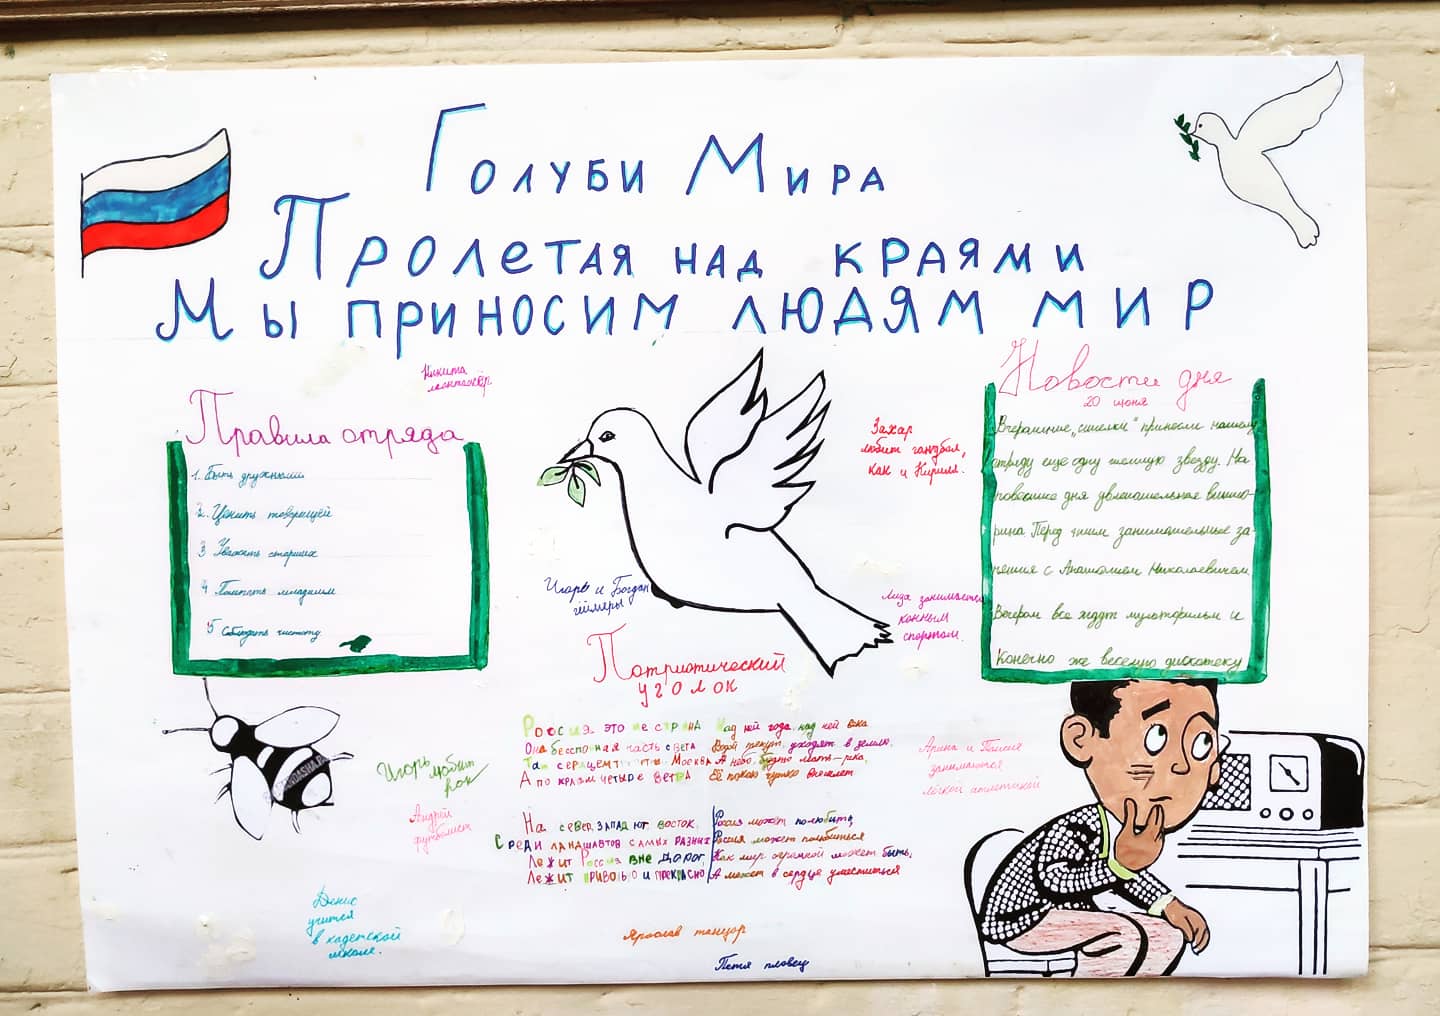 Голуби Мира
Пролетая над краями
Мы приносим людям мир
Никита
Правила отряда
1. Быть дружными
2. Ценить товарищей
3 Уважать старших
4 Помогать младшим
5 Соблюдать чистоту
Захар
любит гандбол,
как и Кирилл.
Новости дня
20 июня
Вчерашние "сиделки" принесли нашему
отряду еще одну звезду. На
повестке дня увлекательная викто-
рина Перед ними занимательные за-
нятия с Анатолием Николаевичем
Вечером все ждут мультфильм и
Конечно же веселую дискотеку
Игорь и Богдан
геймеры
Лиза занимается
конным
спортом.
Патриотический
уголок
Россия это не страна
Она бесспорная часть света
Там сердцем Москва
А по краям четыре ветра
Над ней года, над ней века
Водой текут, уходят в землю.
А небо, будто мать-река,
Её покою чутко внемлет
На север, запад юг, восток,
Среди ландшафтов самых разных
Лежит Россия вне дорог,
Лежит привольно и прекрасно
Россия может полюбить,
Россия может полюбиться
Как мир огромной может быть,
А может в сердце уместиться
Игорь любит
рок
Андрей
футболист
Арина и
занимаются
лёгкой атлетикой
Денис
учится
в кадетской
школе.
Ярослав танцор
Петя пловец